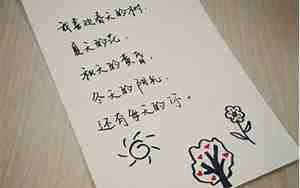 我喜欢春天的树，
夏天的花，
秋天的黄昏，
冬天的阳光，
还有每天的你。